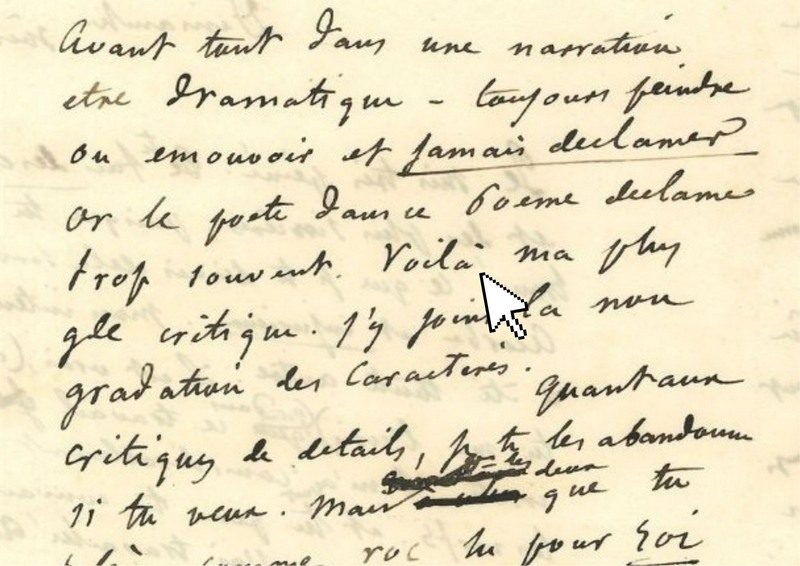 Avant tout dans une narration
etre dramatique - toujours peindre
ou emouvoir et jamais declamer
or le poete dans ce Poeme declame
trop souvent. Voilà ma plus
gde critique. j'y joins la non
gradation des Caracteres.
quant aux
critiques de details, je te les abandonne
si tu veux. Mais
deux
que tu
comme roc tu pour Soi